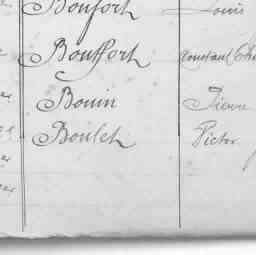 Bonfort Louis
Bouffort Constant
Bouin Pierre
Boulch Victor